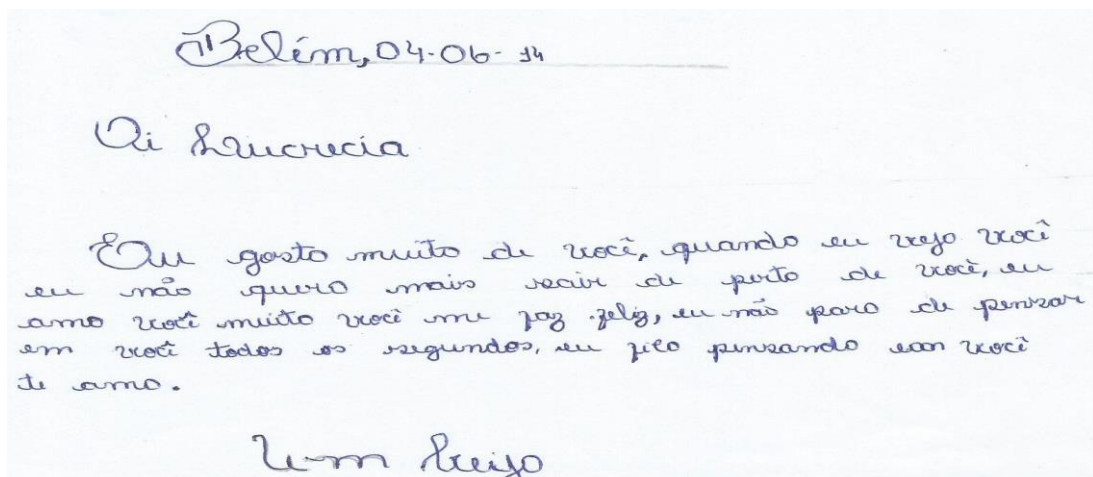 Belém, 04-06-14
Oi Lucrecia
Eu gosto muito de você, quando eu vejo você
eu não quero mais sair de perto de você, eu
amo você muito você me faz feliz, eu não paro de pensar
em você todos os segundos, eu fico pensando em você
te amo.
Um beijo